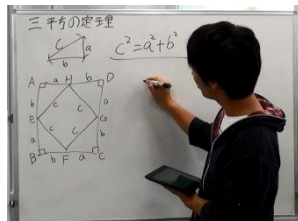 三平方の定理
c a b
c²=a²+b²
A a H b D
b c c a
E G
a c c b
B b F a C